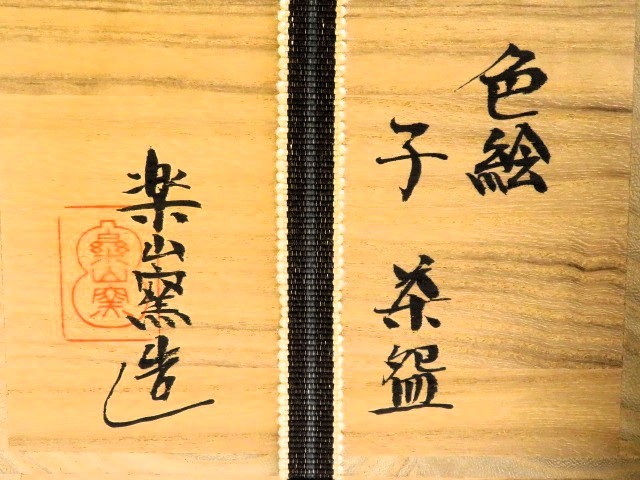 色絵
子 茶盌
楽山窯造
楽山窯